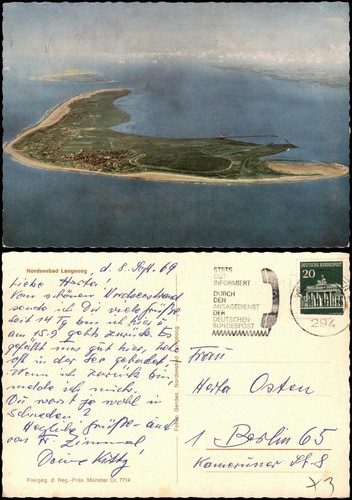 Nordseebad Langeoog
d. 8. Sept. 69
Liebe Herta!
Vom schönen Nordseestrand
sende ich Dir viele Grüße
Seit 14 Tg bin ich hier u
am 15.9 geht's zurück. Es
gefällt mir gut hier, habe
oft in der See gebadet.
Wenn ich zurück bin
melde ich mich.
Du warst ja wohl in
Schweden?
Herzliche Grüße auch
von Fr. Zimmel
Deine Käthy
Freigeg. d. Reg.-Präs. Münster Cr. 7714
Nordseebad Langeoog
STETS
GUT
INFORMIERT
DURCH
DEN
ANSAGEDIENST
DER
DEUTSCHEN
BUNDESPOST
DEUTSCHE BUNDESPOST
20
294
Frau
Herta Osten
1 Berlin 65
Kameruner St. 8
x3